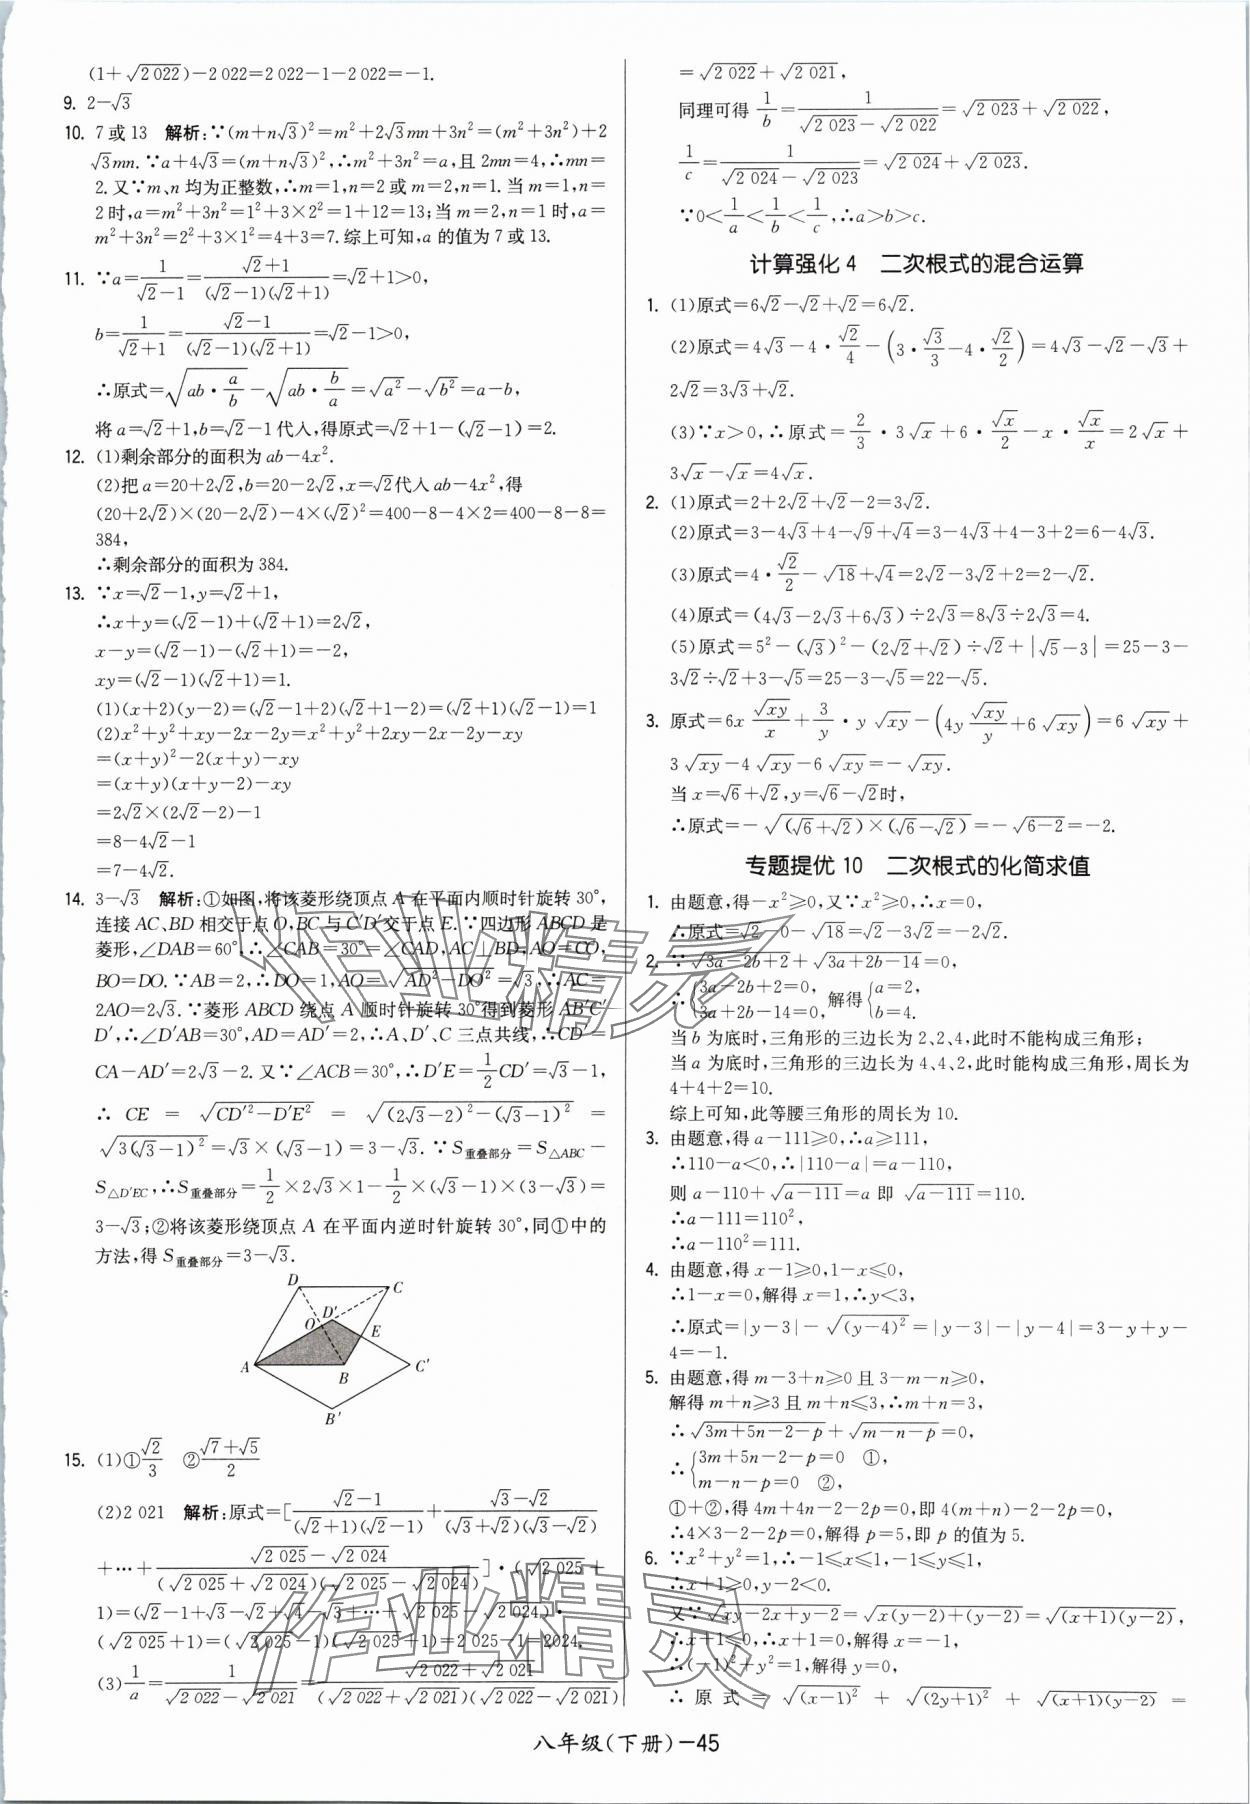 (1+√2 022)-2 022=2 022-1-2 022=-1.
9. 2-√3
10. 7 或 13 解析:∵(m+n√3)²=m²+2√3mn+3n²=(m²+3n²)+2
√3mn.∵a+4√3=(m+n√3)²,∴m²+3n²=a,且 2mn=4,∴mn=
2.又∵m、n 均为正整数,∴m=1,n=2 或 m=2,n=1.当 m=1,n=
2 时,a=m²+3n²=1²+3×2²=1+12=13;当 m=2,n=1 时,a=
m²+3n²=2²+3×1²=4+3=7.综上可知,a 的值为 7 或 13.
11. ∵a=1/(√2-1)=(√2+1)/((√2-1)(√2+1))=√2+1>0,
b=1/(√2+1)=(√2-1)/((√2-1)(√2+1))=√2-1>0,
∴原式=√(ab·a/b)-√(ab·b/a)=√a²-√b²=a-b,
将 a=√2+1,b=√2-1 代入,得原式=√2+1-(√2-1)=2.
12. (1)剩余部分的面积为 ab-4x².
(2)把 a=20+2√2,b=20-2√2,x=√2代入 ab-4x²,得
(20+2√2)×(20-2√2)-4×(√2)²=400-8-4×2=400-8-8=
384,
∴剩余部分的面积为 384.
13. ∵x=√2-1,y=√2+1,
∴x+y=(√2-1)+(√2+1)=2√2,
x-y=(√2-1)-(√2+1)=-2,
xy=(√2-1)(√2+1)=1.
(1)(x+2)(y-2)=(√2-1+2)(√2+1-2)=(√2+1)(√2-1)=1
(2)x²+y²+xy-2x-2y=x²+y²+2xy-2x-2y-xy
=(x+y)²-2(x+y)-xy
=(x+y)(x+y-2)-xy
=2√2×(2√2-2)-1
=8-4√2-1
=7-4√2.
14. 3-√3 解析:①如图,将该菱形绕顶点 A 在平面内顺时针旋转 30°,
连接 AC、BD 相交于点 O,BC 与 C′D′交于点 E.∵四边形 ABCD 是
菱形,∠DAB=60°,∴∠CAB=30°=∠CAD,AC⊥BD,AO=CO,
BO=DO.∵AB=2,∴DO=1,AO=√(AD²-DO²)=√3,∴AC=
2AO=2√3.∵菱形 ABCD 绕点 A 顺时针旋转 30°得到菱形 AB′C′
D′,∴∠D′AB=30°,AD=AD′=2,∴A、D′、C 三点共线,∴CD′=
CA-AD′=2√3-2.又∵∠ACB=30°,∴D′E=1/2CD′=√3-1,
∴ CE = √(CD′²-D′E²) = √((2√3-2)²-(√3-1)²) =
√(3(√3-1)²)=√3×(√3-1)=3-√3.∵S重叠部分=S△ABC-
S△D′EC,∴S重叠部分=1/2×2√3×1-1/2×(√3-1)×(3-√3)=
3-√3;②将该菱形绕顶点 A 在平面内逆时针旋转 30°,同①中的
方法,得 S重叠部分=3-√3.
D C D′ O E A B C′ B′
15. (1)①√2/3 ②(√7+√5)/2
(2)2 021 解析:原式=[(√2-1)/((√2+1)(√2-1))+(√3-√2)/((√3+√2)(√3-√2))
+…+(√2 025-√2 024)/((√2 025+√2 024)(√2 025-√2 024))]·(√2 025+
1)=(√2-1+√3-√2+√4-√3+…+√2 025-√2 024)·
(√2 025+1)=(√2 025-1)(√2 025+1)=2 025-1=2024.
(3)1/a=1/(√2 022-√2 021)=(√2 022+√2 021)/((√2 022+√2 021)(√2 022-√2 021))
=√2 022+√2 021,
同理可得 1/b=1/(√2 023-√2 022)=√2 023+√2 022,
1/c=1/(√2 024-√2 023)=√2 024+√2 023.
∵0<1/a<1/b<1/c,∴a>b>c.
计算强化 4 二次根式的混合运算
1. (1)原式=6√2-√2+√2=6√2.
(2)原式=4√3-4·√2/4-(3·√3/3-4·√2/2)=4√3-√2-√3+
2√2=3√3+√2.
(3)∵x>0,∴原式=2/3·3√x+6·√x/2-x·√x/x=2√x+
3√x-√x=4√x.
2. (1)原式=2+2√2+√2-2=3√2.
(2)原式=3-4√3+4-√9+√4=3-4√3+4-3+2=6-4√3.
(3)原式=4·√2/2-√18+√4=2√2-3√2+2=2-√2.
(4)原式=(4√3-2√3+6√3)÷2√3=8√3÷2√3=4.
(5)原式=5²-(√3)²-(2√2+√2)÷√2+|√5-3|=25-3-
3√2÷√2+3-√5=25-3-√5=22-√5.
3. 原式=6x √xy/x+3/y·y √xy-(4y √xy/y+6 √xy)=6 √xy+
3 √xy-4 √xy-6 √xy=-√xy.
当 x=√6+√2,y=√6-√2时,
∴原式=-√((√6+√2)×(√6-√2))=-√(6-2)=-2.
专题提优 10 二次根式的化简求值
1. 由题意,得-x²≥0,又∵x²≥0,∴x=0,
∴原式=√2-0-√18=√2-3√2=-2√2.
2. ∵√(3a-2b+2)+√(3a+2b-14)=0,
∴{3a-2b+2=0, 3a+2b-14=0, 解得{a=2, b=4.
当 b 为底时,三角形的三边长为 2、2、4,此时不能构成三角形;
当 a 为底时,三角形的三边长为 4、4、2,此时能构成三角形,周长为
4+4+2=10.
综上可知,此等腰三角形的周长为 10.
3. 由题意,得 a-111≥0,∴a≥111,
∴110-a<0,∴|110-a|=a-110,
则 a-110+√(a-111)=a 即 √(a-111)=110.
∴a-111=110²,
∴a-110²=111.
4. 由题意,得 x-1≥0,1-x≤0,
∴1-x=0,解得 x=1,∴y<3,
∴原式=|y-3|-√((y-4)²)=|y-3|-|y-4|=3-y+y-
4=-1.
5. 由题意,得 m-3+n≥0 且 3-m-n≥0,
解得 m+n≥3 且 m+n≤3,∴m+n=3,
∴√(3m+5n-2-p)+√(m-n-p)=0,
∴{3m+5n-2-p=0 ①, m-n-p=0 ②,
①+②,得 4m+4n-2-2p=0,即 4(m+n)-2-2p=0,
∴4×3-2-2p=0,解得 p=5,即 p 的值为 5.
6. ∵x²+y²=1,∴-1≤x≤1,-1≤y≤1,
∴x+1≥0,y-2<0.
又∵√(xy-2x+y-2)=√(x(y-2)+(y-2))=√((x+1)(y-2)),
∴x+1≤0,∴x+1=0,解得 x=-1,
∴(-1)²+y²=1,解得 y=0,
∴原式=√((x-1)²) + √((2y+1)²) + √((x+1)(y-2)) =
作业精灵
作业精灵
八年级(下册)-45